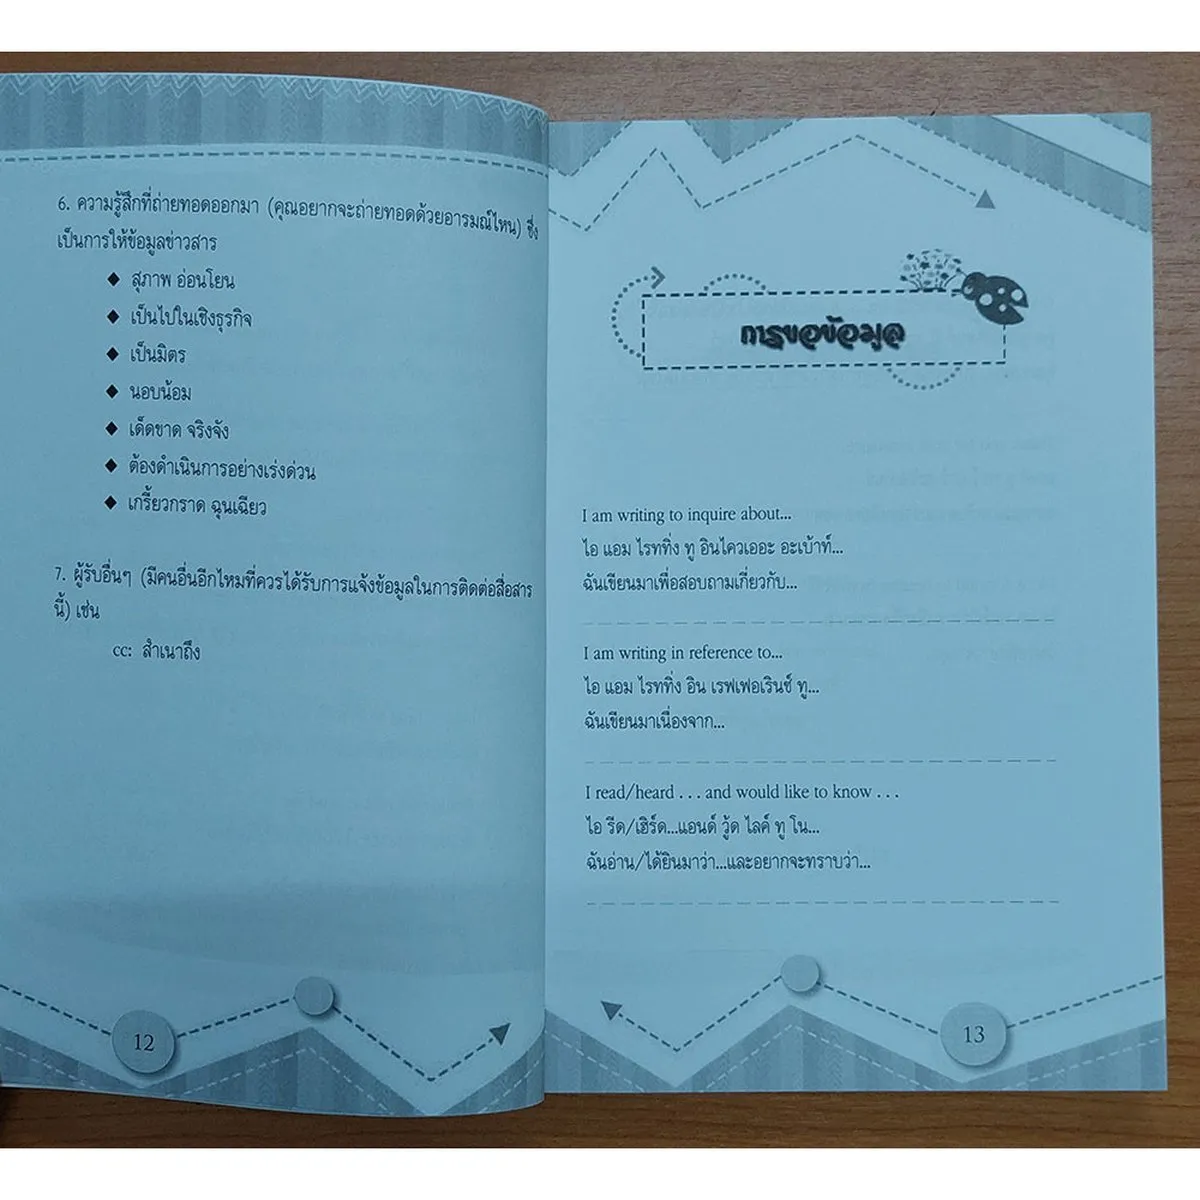 6. ความรู้สึกที่ถ่ายทอดออกมา (คุณอยากจะถ่ายทอดด้วยอารมณ์ไหน) ซึ่ง
เป็นการให้ข้อมูลข่าวสาร
◆ สุภาพ อ่อนโยน
◆ เป็นไปในเชิงธุรกิจ
◆ เป็นมิตร
◆ นอบน้อม
◆ เด็ดขาด จริงจัง
◆ ต้องดำเนินการอย่างเร่งด่วน
◆ เกรี้ยวกราด ฉุนเฉียว
7. ผู้รับอื่นๆ (มีคนอื่นอีกไหมที่ควรได้รับการแจ้งข้อมูลในการติดต่อสื่อสาร
นี้) เช่น
cc: สำเนาถึง
12
การขอข้อมูล
I am writing to inquire about...
ไอ แอม ไรททิ่ง ทู อินไควเออะ อะเบ้าท์...
ฉันเขียนมาเพื่อสอบถามเกี่ยวกับ...
I am writing in reference to...
ไอ แอม ไรททิ่ง อิน เรฟเฟอเรินซ์ ทู...
ฉันเขียนมาเนื่องจาก...
I read/heard . . . and would like to know . . .
ไอ รีด/เฮิร์ด...แอนด์ วู้ด ไลค์ ทู โน...
ฉันอ่าน/ได้ยินมาว่า...และอยากจะทราบว่า...
13